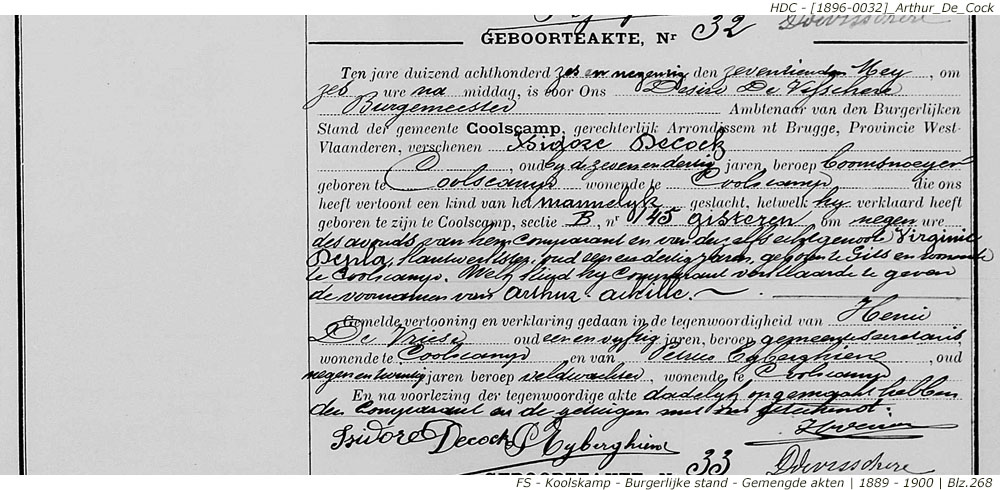 HDC - [1896-0032]_Arthur_De_Cock
GEBOORTEAKTE, Nr 32
Ten jare duizend achthonderd zes en negentig den zeventienden Mey , om
zes ure na middag, is voor Ons Desiré De Visschere
Burgemeester Ambtenaar van den Burgerlijken
Stand der gemeente Coolscamp, gerechterlijk Arrondissem nt Brugge, Provincie West-
Vlaanderen, verschenen Isidore Decock
, oud by de zeven en dertig jaren, beroep boomsnoeyer
geboren te Coolscamp wonende te Coolscamp die ons
heeft vertoont een kind van het mannelyk geslacht, hetwelk hy verklaard heeft
geboren te zijn te Coolscamp, sectie B, nr 145 gisteren om negen ure
des avonds van hem Comparant en van des zelfs echtgenote Virginie
Depla, oud een en dertig jaren, geboren te Gits en wonende
te Coolscamp. Welk kind hy Comparant verklaarde te geven
de voornamen van Arthur-Achille.
Gemelde vertooning en verklaring gedaan in de tegenwoordigheid van Henri
De Vriese oud een en vyftig jaren, beroep gemeentesecretaris
wonende te Coolscamp en van Petrus Eyberghiens , oud
negen en twintig jaren beroep veldwachter , wonende te Coolscamp
En na voorlezing der tegenwoordige akte dadelyk opgemaakt hebben
den Comparant en de getuigen met ons geteekend:
Isidore Decock P Eyberghiens
GEBOORTEAKTE, Nr 33 Ddevisschere
FS - Koolskamp - Burgerlijke stand - Gemengde akten | 1889 - 1900 | Blz.268